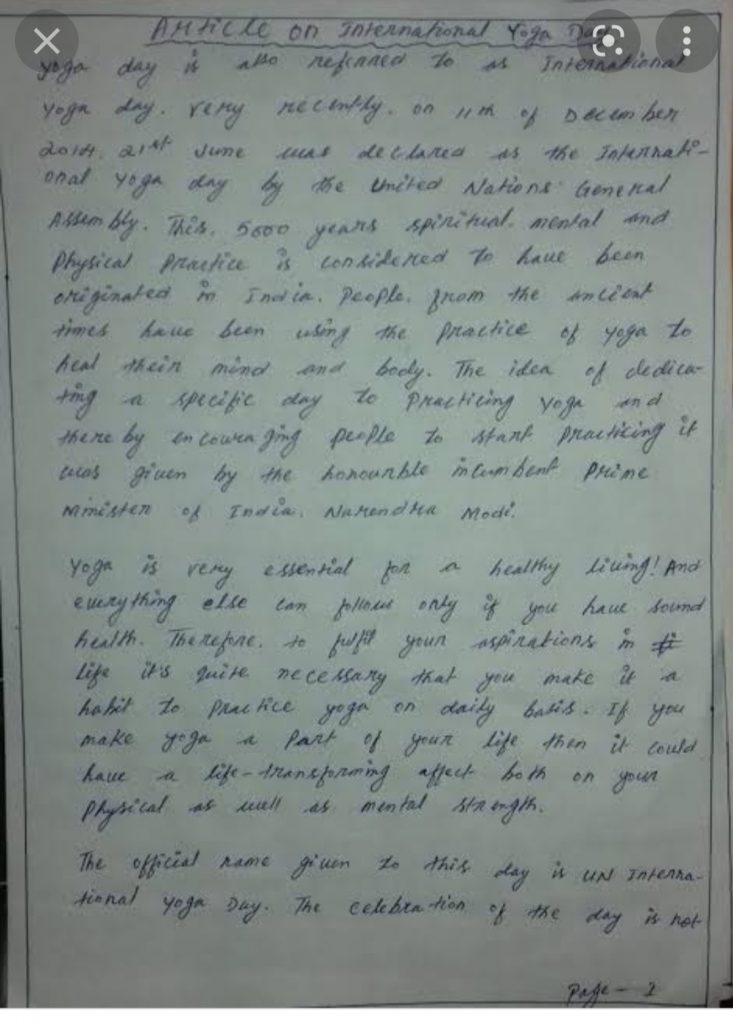 Article on International Yoga Day
Yoga day is also referred to as International
Yoga day. Very recently, on 11th of December
2014, 21st June was declared as the Internati-
onal Yoga day by the United Nations General
Assembly. This, 5000 years spiritual, mental and
Physical Practice is considered to have been
originated in India. People, from the ancient
times have been using the Practice of yoga to
heal their mind and body. The idea of dedica-
ting a specific day to Practicing yoga and
there by encouraging people to start Practicing it
was given by the honourble incumbent Prime
Minister of India, Narendra Modi.
Yoga is very essential for a healthy living! And
everything else can follow only if you have sound
health. Therefore, to fulfil your aspirations in
life it's quite necessary that you make it a
habit to practice yoga on daily basis. If you
make yoga a Part of your life then it could
have a life-transforming affect both on your
Physical as well as mental strength.
The official name given to this day is UN Interna-
tional Yoga Day. The celebration of the day is not
Page - 1